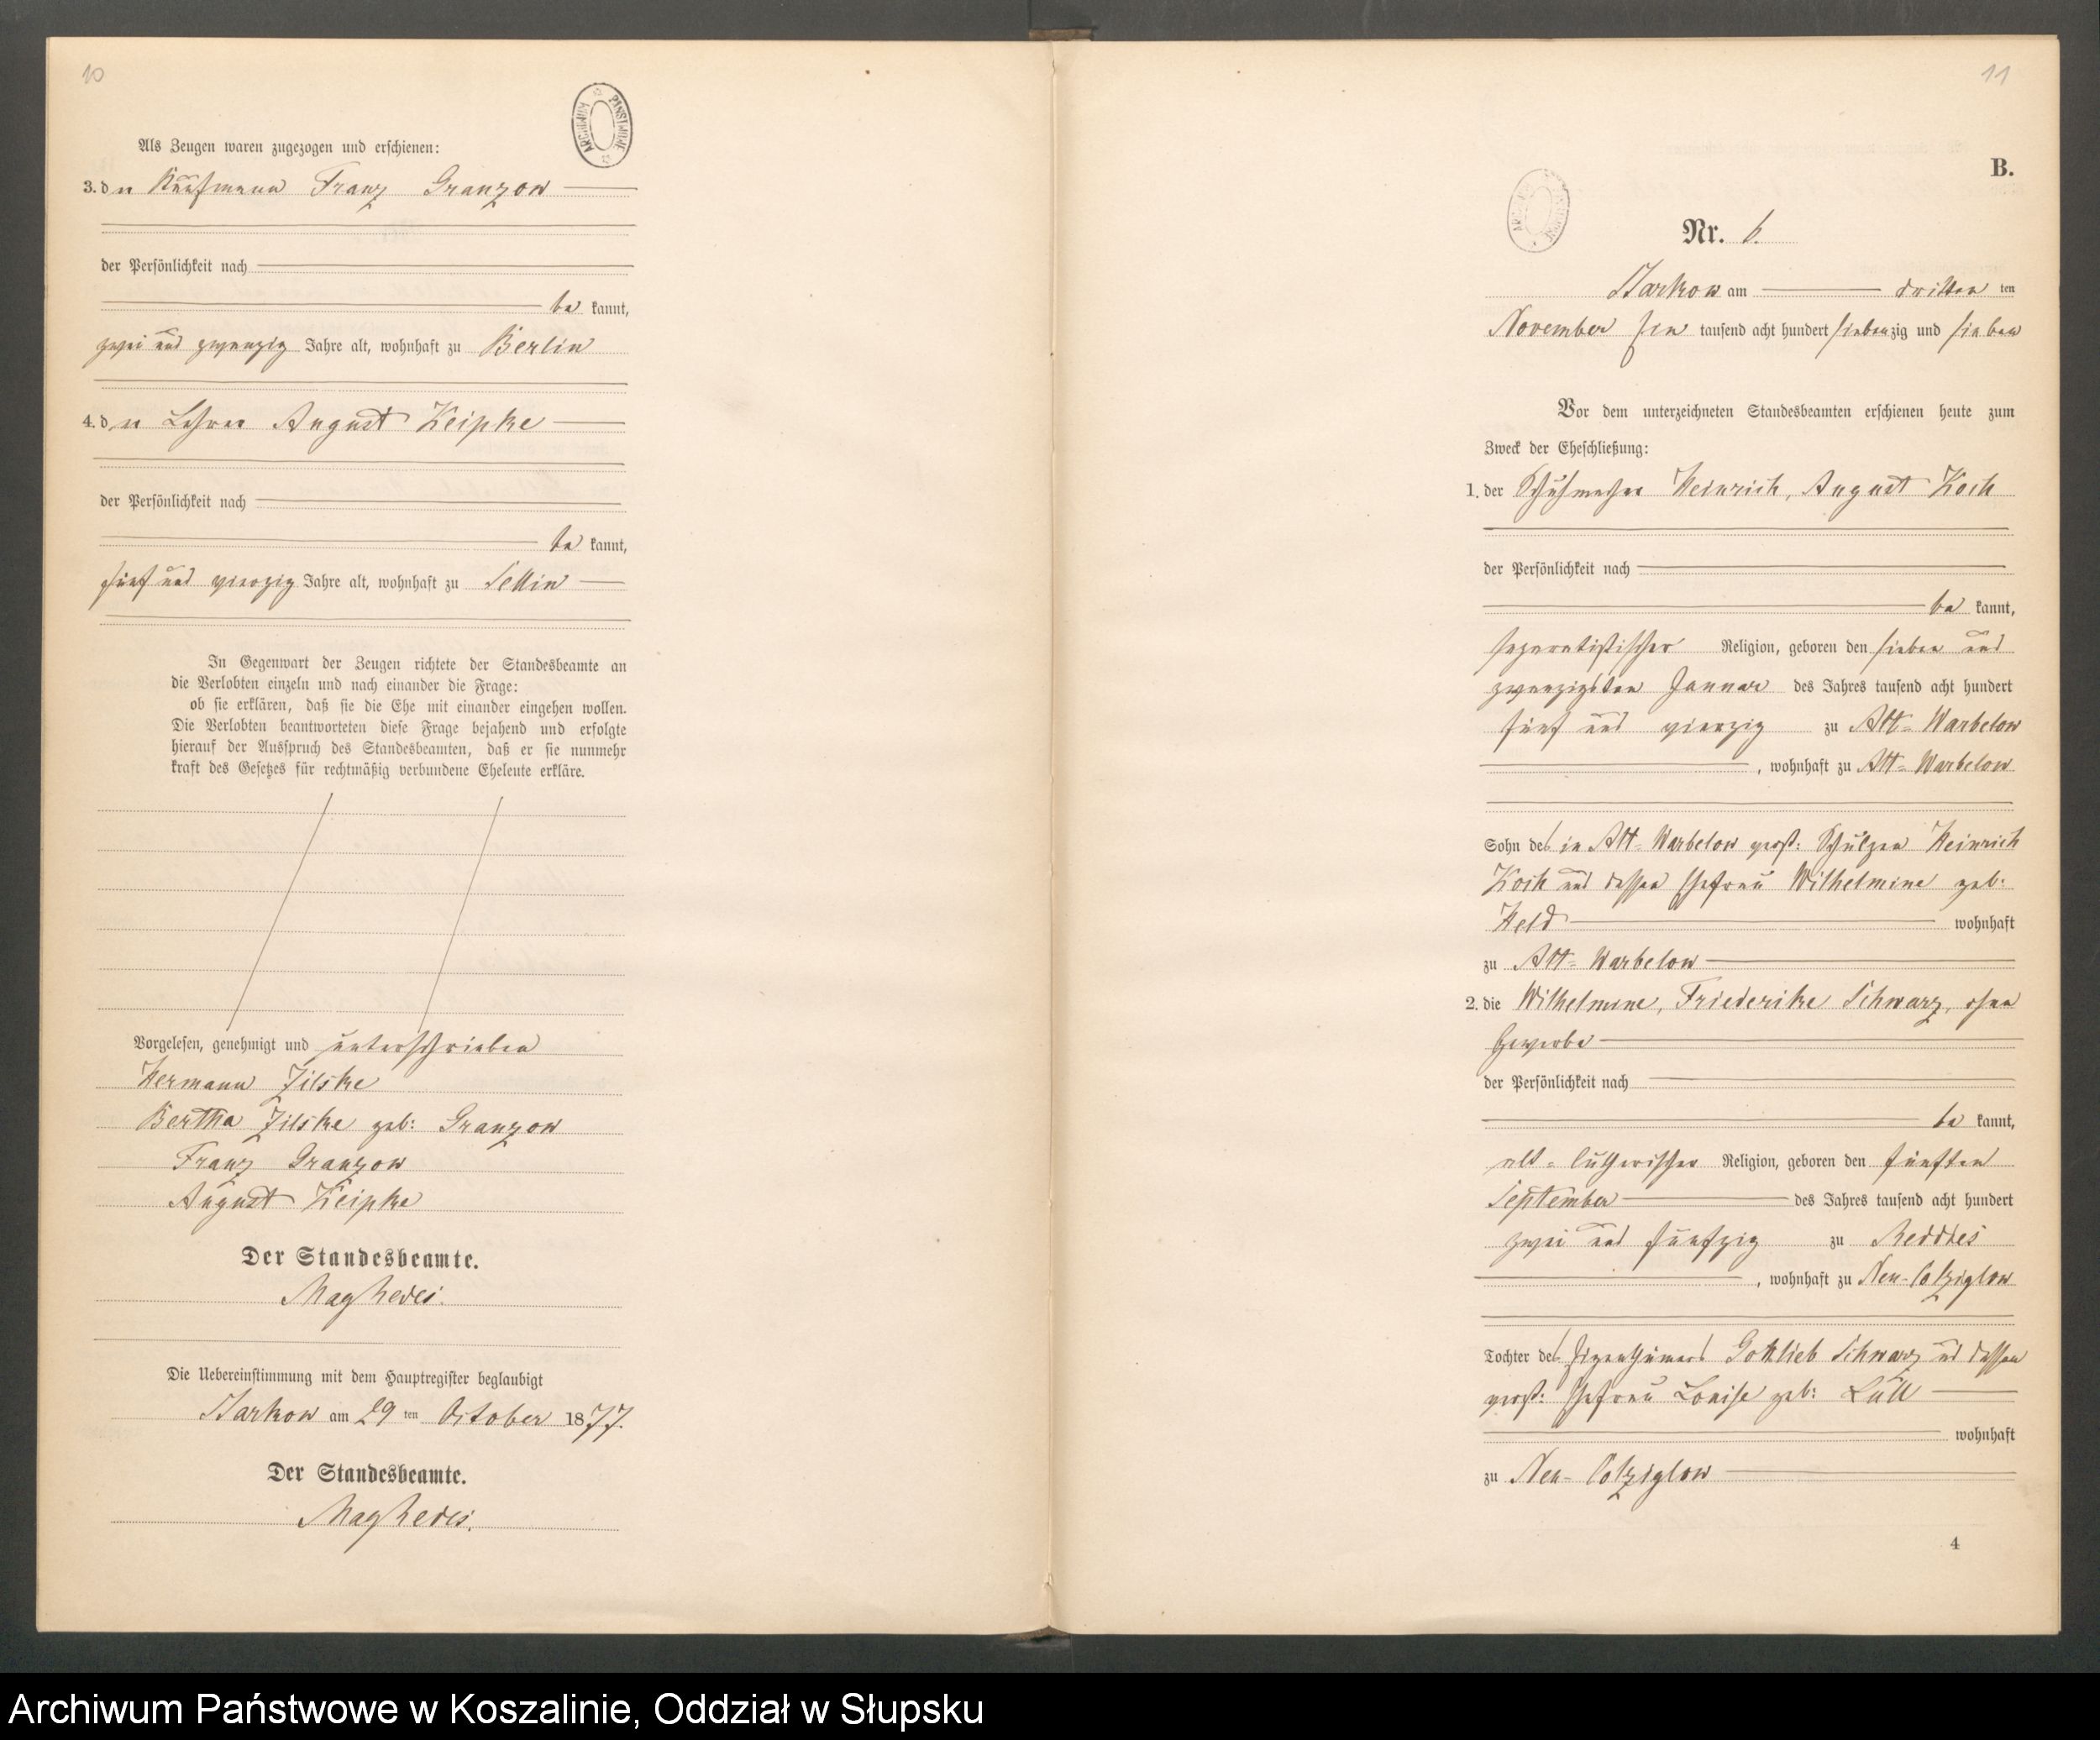 10
ARCHIWUM PAŃSTWOWE
Als Zeugen waren zugezogen und erschienen:
3. der Kaufmann Franz Granzow
der Persönlichkeit nach
be kannt,
zwei und zwanzig Jahre alt, wohnhaft zu Berlin
4. der Lehrer August Keipke
der Persönlichkeit nach
be kannt,
fünf und vierzig Jahre alt, wohnhaft zu Sellin
In Gegenwart der Zeugen richtete der Standesbeamte an
die Verlobten einzeln und nach einander die Frage:
ob sie erklären, daß sie die Ehe mit einander eingehen wollen.
Die Verlobten beantworteten diese Frage bejahend und erfolgte
hierauf der Ausspruch des Standesbeamten, daß er sie nunmehr
kraft des Gesetzes für rechtmäßig verbundene Eheleute erkläre.
Vorgelesen, genehmigt und unterschrieben
Hermann Zilske
Bertha Zilske geb: Granzow
Franz Granzow
August Keipke
Der Standesbeamte.
Die Uebereinstimmung mit dem Hauptregister beglaubigt
Starkow am 29 ten October 1877.
Der Standesbeamte.
11
B.
Nr. 6.
Starkow am dritten ten
November ein tausend acht hundert siebenzig und sieben
Vor dem unterzeichneten Standesbeamten erschienen heute zum
Zweck der Eheschließung:
1. der Schuhmacher Heinrich, August Koch
der Persönlichkeit nach
be kannt,
separatistischer Religion, geboren den sieben und
zwanzigsten Januar des Jahres tausend acht hundert
fünf und vierzig zu Alt-Warbelow
, wohnhaft zu Alt-Warbelow
Sohn des in Alt-Warbelow verst: Schulzen Heinrich
Koch und dessen Ehefrau Wilhelmine geb:
Held wohnhaft
zu Alt-Warbelow
2. die Wilhelmine, Friederike Schwarz, ohne
Gewerbe
der Persönlichkeit nach
be kannt,
alt-lutherischer Religion, geboren den fünften
September des Jahres tausend acht hundert
zwei und fünfzig zu Reddies
, wohnhaft zu Neu-Colziglow
Tochter des Eigenthümers Gottlieb Schwarz und dessen
verst: Ehefrau Louise geb: Lüll
wohnhaft
zu Neu-Colziglow
4
Archiwum Państwowe w Koszalinie, Oddział w Słupsku